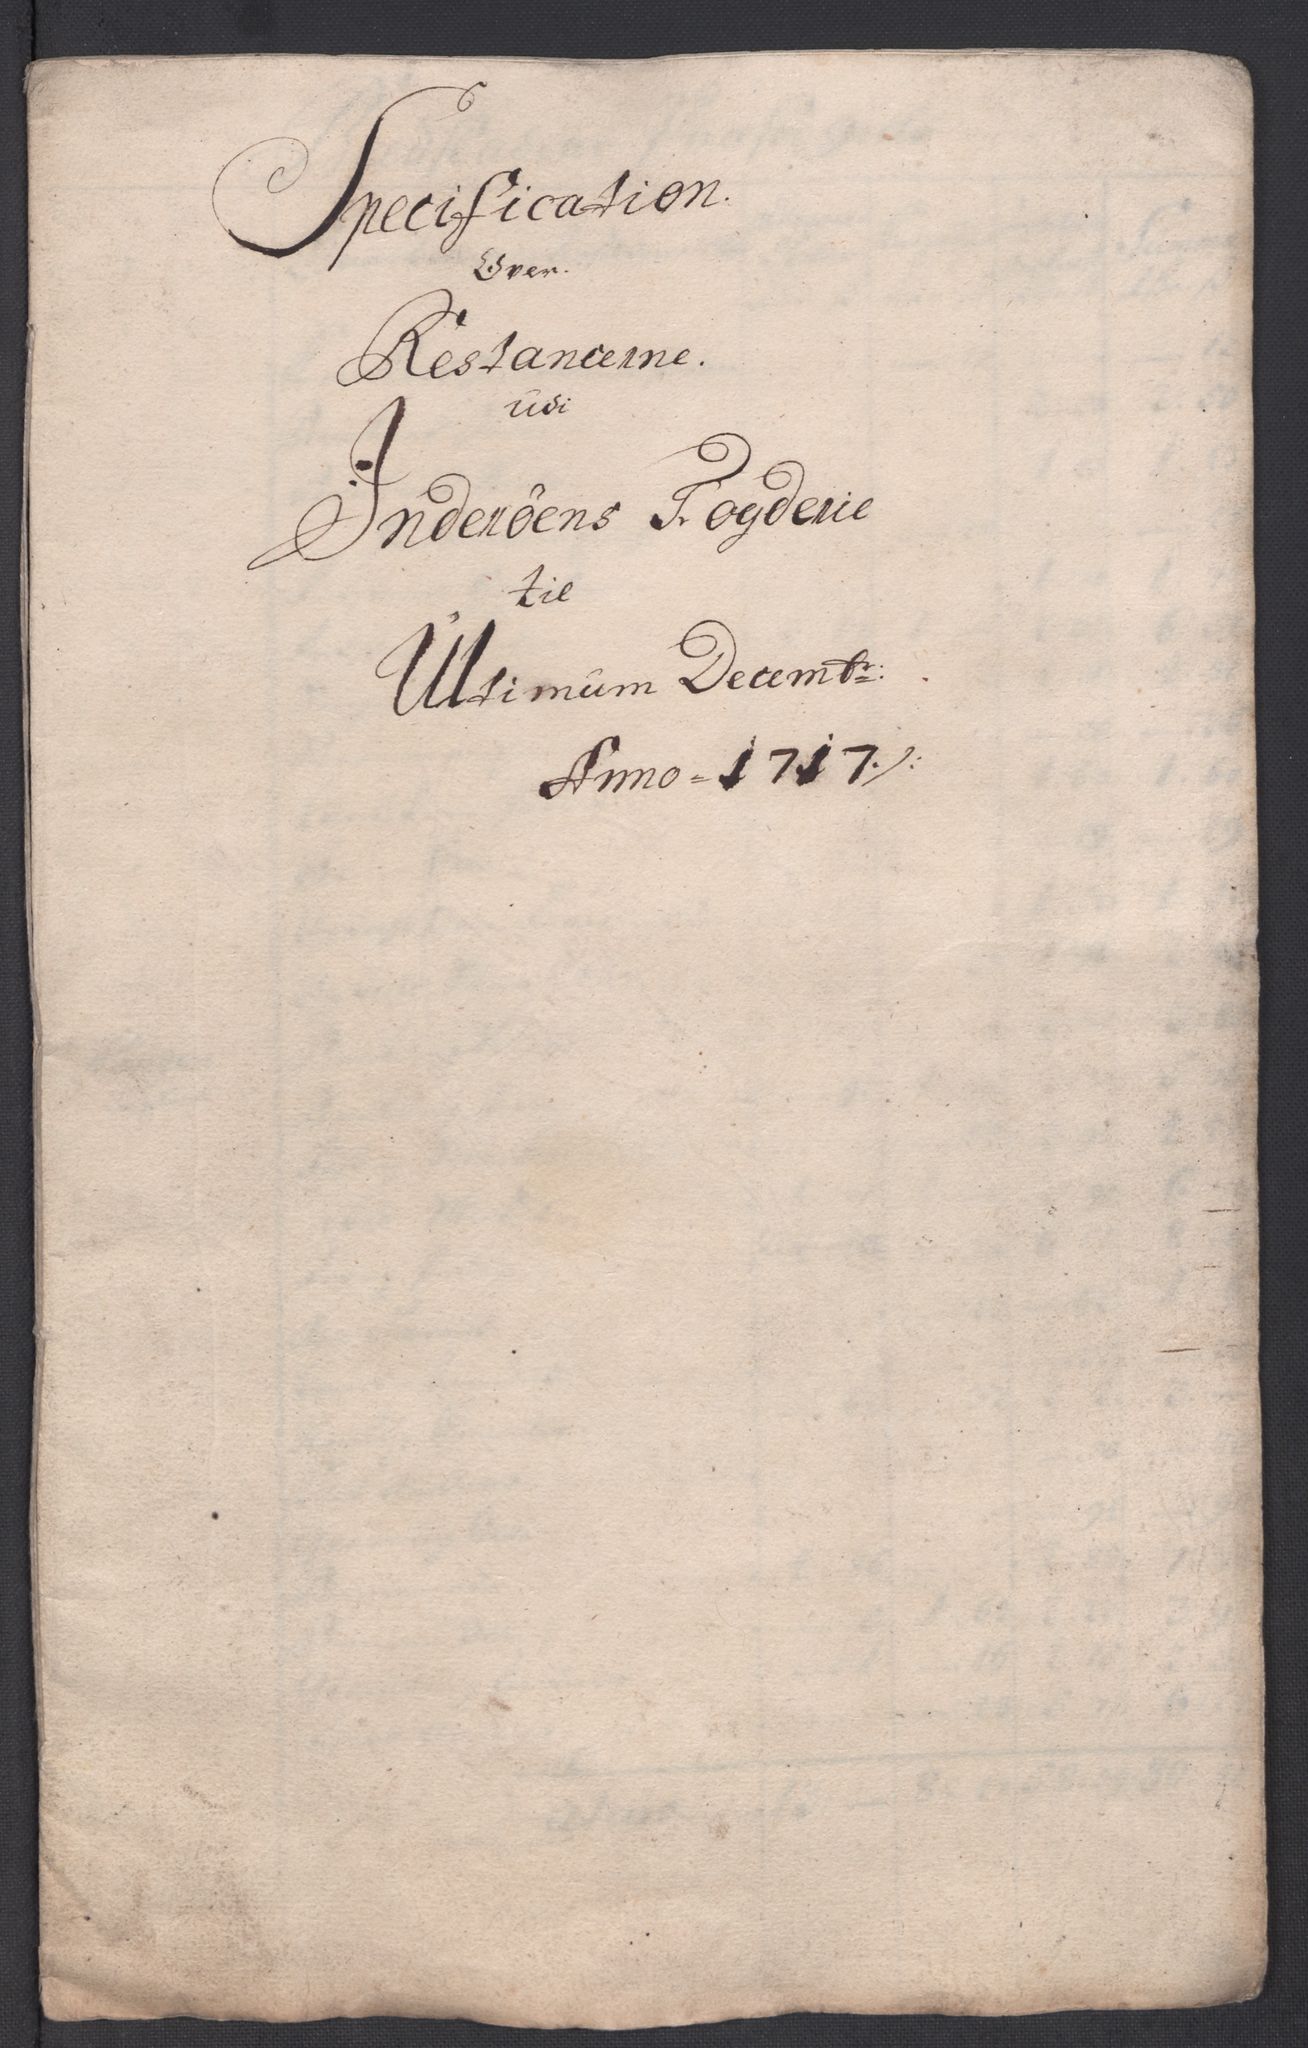 Specification.
Over.
Restancerne.
udi
Inderöens Fogderie
til
Ultimum Decembr:
Anno = 1717./: